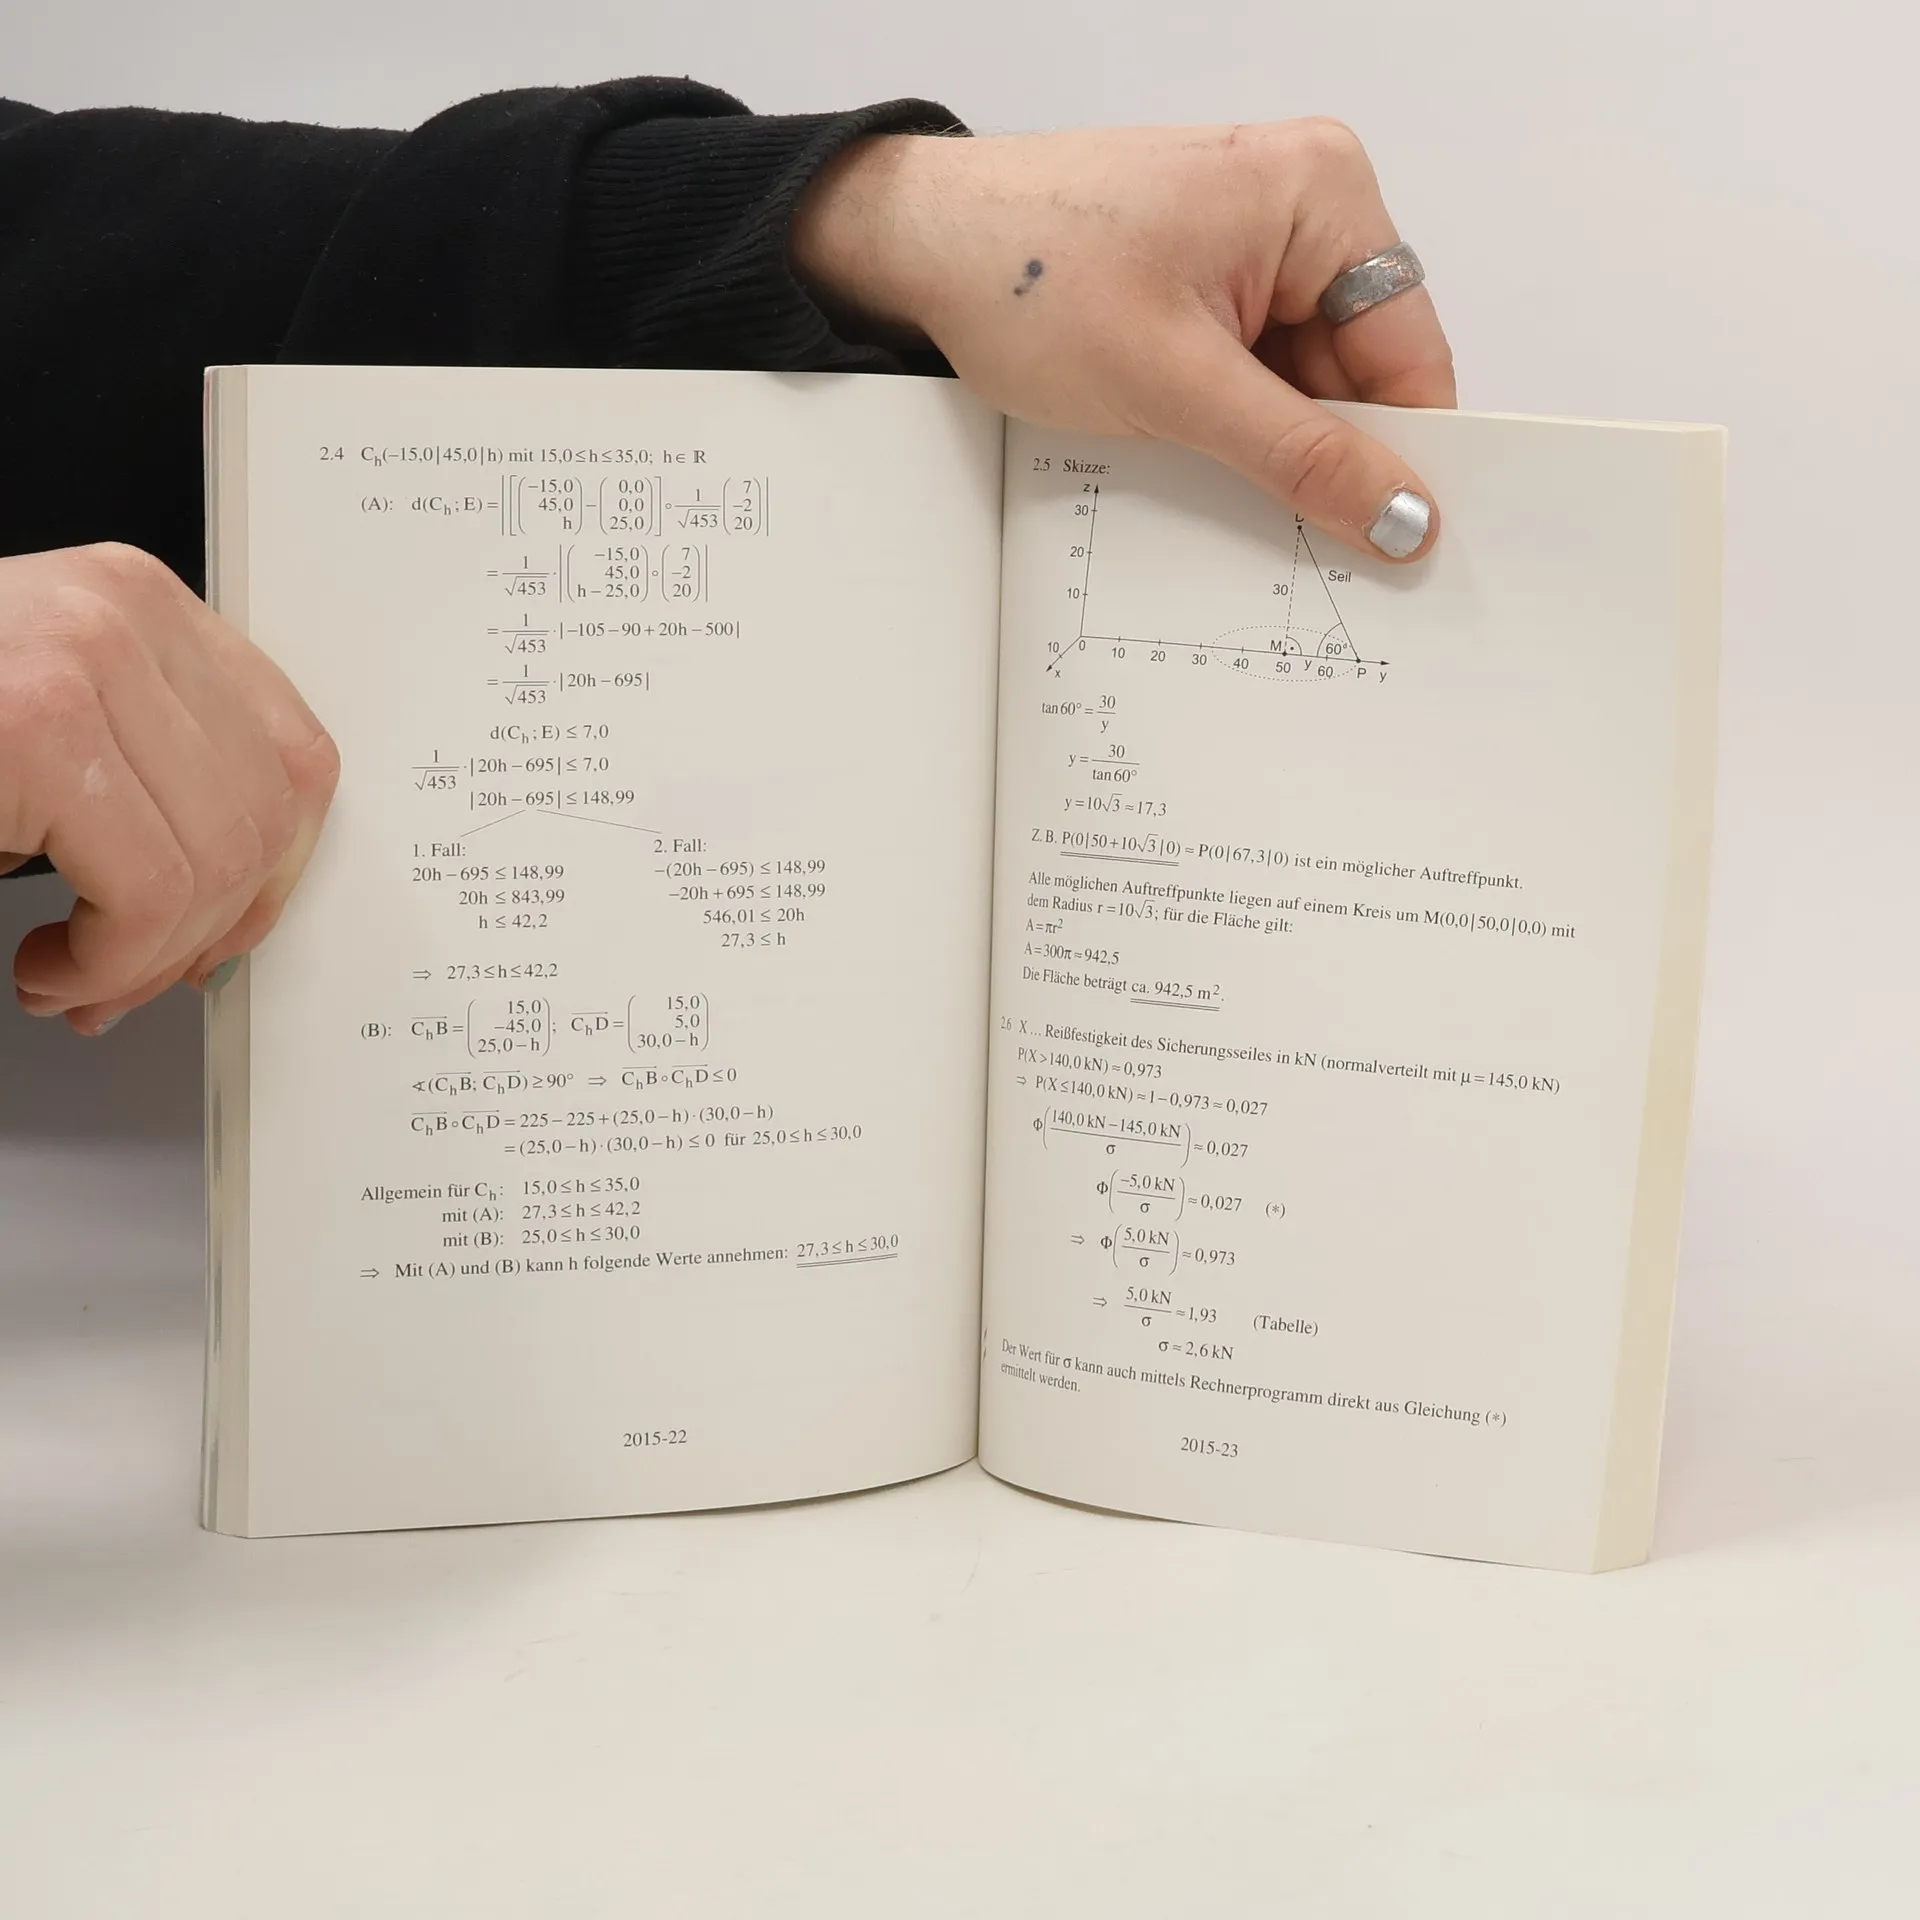 2.4 C_h(–15,0|45,0|h) mit 15,0≤h≤35,0; h∈ℝ
(A): d(C_h; E) = |[(–15,0 45,0 h) – (0,0 0,0 25,0)] ∘ 1/√453 (7 –2 20)|
= 1/√453 · |(–15,0 45,0 h – 25,0) ∘ (7 –2 20)|
= 1/√453 · |–105 – 90 + 20h – 500|
= 1/√453 · |20h – 695|
d(C_h; E) ≤ 7,0
1/√453 · |20h – 695| ≤ 7,0
|20h – 695| ≤ 148,99
1. Fall: 2. Fall:
20h – 695 ≤ 148,99 –(20h – 695) ≤ 148,99
20h ≤ 843,99 –20h + 695 ≤ 148,99
h ≤ 42,2 546,01 ≤ 20h
27,3 ≤ h
⇒ 27,3≤h≤42,2
(B): C_hB = (15,0 –45,0 25,0 – h); C_hD = (15,0 5,0 30,0 – h)
∢(C_hB; C_hD) ≥ 90° ⇒ C_hB ∘ C_hD ≤ 0
C_hB ∘ C_hD = 225 – 225 + (25,0 – h) · (30,0 – h)
= (25,0 – h) · (30,0 – h) ≤ 0 für 25,0 ≤ h ≤ 30,0
Allgemein für C_h: 15,0 ≤ h ≤ 35,0
mit (A): 27,3 ≤ h ≤ 42,2
mit (B): 25,0 ≤ h ≤ 30,0
⇒ Mit (A) und (B) kann h folgende Werte annehmen: 27,3 ≤ h ≤ 30,0
2015-22
2.5 Skizze:
z
30
20
10
Seil
30
M
60°
10 0 10 20 30 40 50 y 60 P y
x
tan 60° = 30/y
y = 30/tan 60°
y = 10√3 ≈ 17,3
Z. B. P(0|50 + 10√3|0) ≈ P(0|67,3|0) ist ein möglicher Auftreffpunkt.
Alle möglichen Auftreffpunkte liegen auf einem Kreis um M(0,0|50,0|0,0) mit
dem Radius r = 10√3; für die Fläche gilt:
A = πr²
A = 300π ≈ 942,5
Die Fläche beträgt ca. 942,5 m².
2.6 X ... Reißfestigkeit des Sicherungsseiles in kN (normalverteilt mit μ = 145,0 kN)
P(X > 140,0 kN) ≈ 0,973
⇒ P(X ≤ 140,0 kN) ≈ 1 – 0,973 ≈ 0,027
Φ((140,0 kN – 145,0 kN)/σ) ≈ 0,027
Φ(–5,0 kN/σ) ≈ 0,027 (*)
⇒ Φ(5,0 kN/σ) ≈ 0,973
⇒ 5,0 kN/σ ≈ 1,93 (Tabelle)
σ ≈ 2,6 kN
Der Wert für σ kann auch mittels Rechnerprogramm direkt aus Gleichung (*)
ermittelt werden.
2015-23